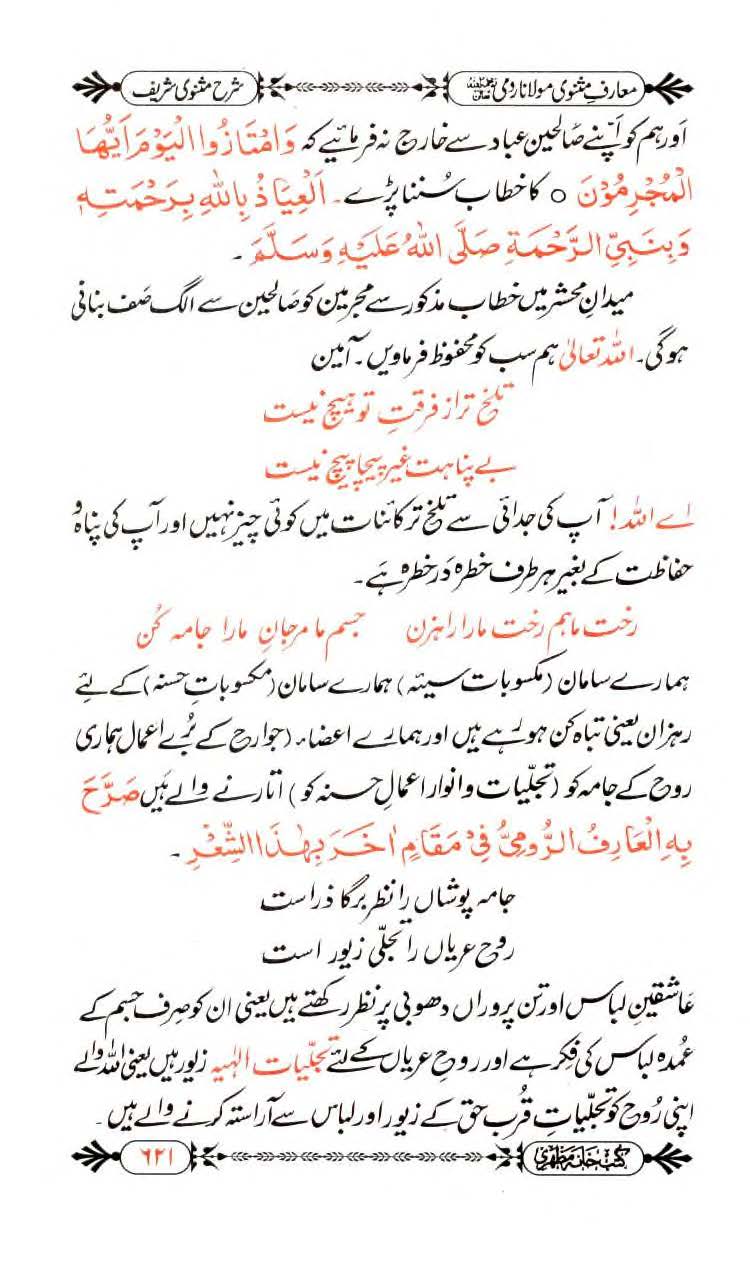 معارفِ مثنوی مولانا رومی رحمۃ اللہ تعالیٰ علیہ شرح مثنوی شریف
اور ہم کو اپنے صالحین عباد سے خارج نہ فرمائیے کہ وَامْتَازُوا الْیَوْمَ اَیُّهَا
الْمُجْرِمُوْنَ ○ کا خطاب سُننا پڑے۔ اَلْعِیَاذُ بِاللّٰهِ بِرَحْمَتِهٖ
وَبِنَبِیِّ الرَّحْمَةِ صَلَّی اللّٰهُ عَلَیْهِ وَسَلَّمَ۔
میدانِ محشر میں خطاب مذکور سے مجرمین کو صالحین سے الگ صَف بنانی
ہوگی۔ اللہ تعالیٰ ہم سب کو محفوظ فرماویں۔ آمین
تلخ تر از فرقتِ تو ہیچ نیست
بے پناہت غیر پیچاپیچ نیست
اے اللہ! آپ کی جدائی سے تلخ تر کائنات میں کوئی چیز نہیں اور آپ کی پناہ و
حفاظت کے بغیر ہر طرف خطرہ در خطرہ ہے۔
رخت ما ہم رخت مارا راہزن جسم ما مرجانِ مارا جامہ کُن
ہمارے سامان (مکسوبات سیئہ) ہمارے سامان (مکسوباتِ حسنہ) کے لئے
رہزان یعنی تباہ کن ہو رہے ہیں اور ہمارے اعضاء (جوارح کے بُرے اعمال ہماری
روح کے جامہ کو (تجلّیات و انوار اعمالِ حسنہ کو) اتارنے والے ہیں صَرَّحَ
بِهِ الْعَارِفُ الرُّوْمِیُّ فِیْ مَقَامٍ اٰخَرَ بِهٰذَا الشِّعْرِ۔
جامہ پوشاں را نظر بر گاذر است
روح عریاں را تجلّی زیور است
عاشقینِ لباس اور تن پروراں دھوبی پر نظر رکھتے ہیں یعنی ان کو صرف جسم کے
عُمدہ لباس کی فِکر ہے اور روح عریاں کے لئے تجلّیات الٰہیہ زیور ہیں یعنی اللہ والے
اپنی رُوح کو تجلّیاتِ قُرب حق کے زیور اور لباس سے آراستہ کرنے والے ہیں۔
کتب خانہ مظہری ۶۲۱